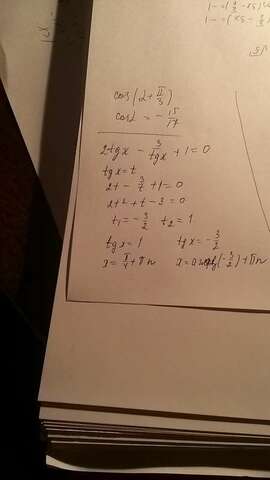 cos(2+π/3)
cosα = -15/17
2tgx - 3/tgx + 1 = 0
tgx = t
2t - 3/t + 1 = 0
2t² + t - 3 = 0
t₁ = -3/2 t₂ = 1
tgx = 1 tgx = -3/2
x = π/4 + πn x = arctg(-3/2) + πn